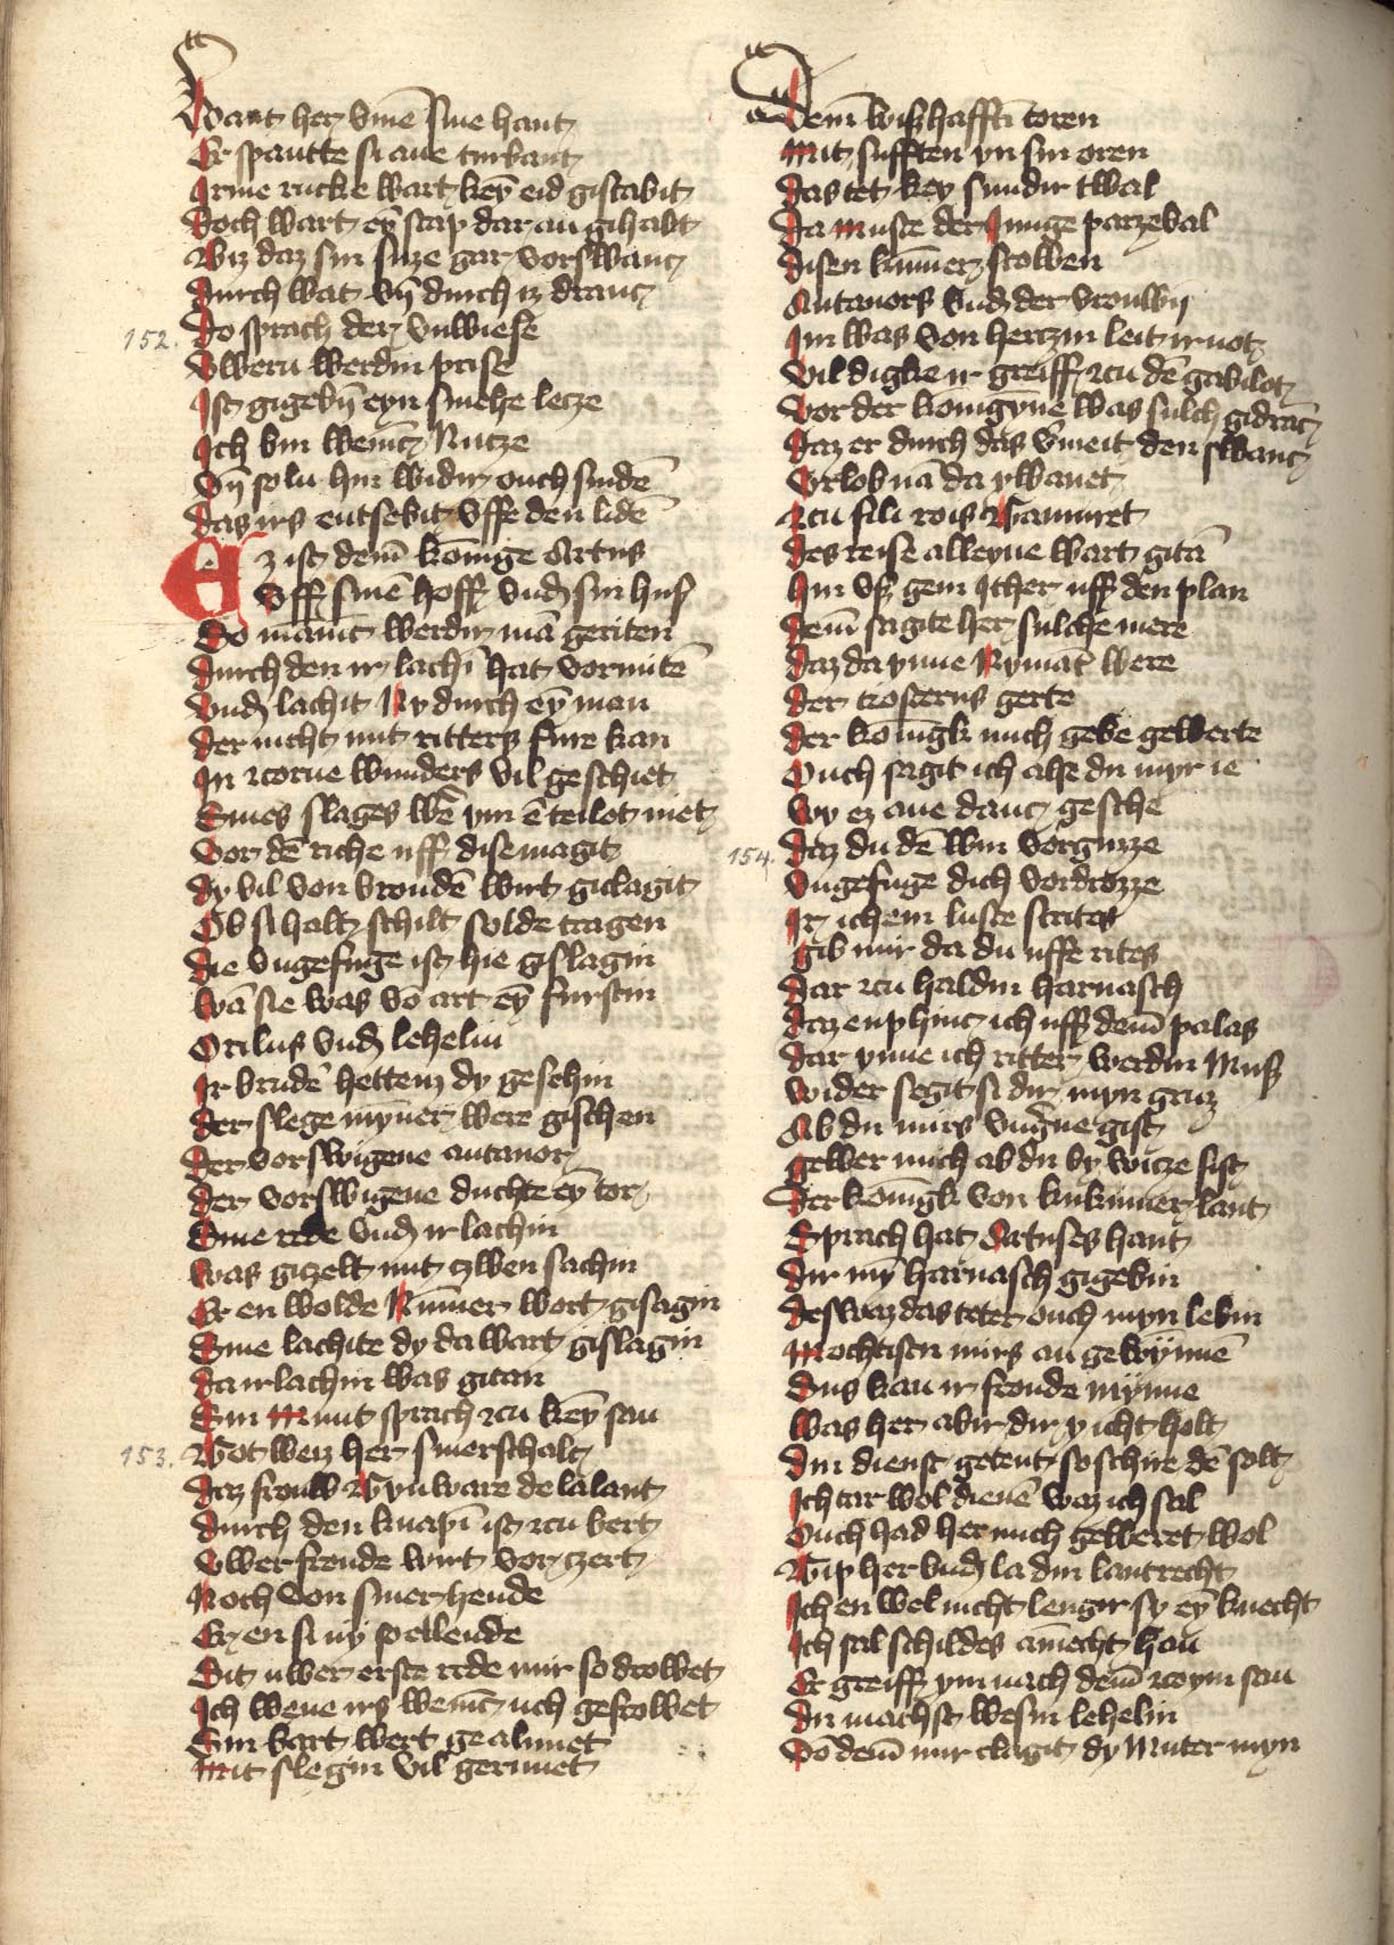 Want her vme̅ sine hant
Er spantte si ane turbant
Irme rucke wart key̅ eid gistabit
Doch wart ey̅ stap dar an gihabt
Biz daz sin suze gar vorswanc
Durch wat vn̅ durch iz dranc
152. Do sprach der vnwiese
Vwern werdin prise
Ist gigeby̅ eyn smehe letze
Ich bin wenic Nutze
Vn̅ solu hin widir ouch sinde̅
Das irs entsebit vffe den lide̅
Ez ist dem̅ konige Artus
Vff sine̅ hoff vnd sin hus
So manic werdir ma̅ geriten
Durch den ir lachi̅ hat vormite̅
Vnd lachit Ny durch ey̅ man
Der nicht mit ritters fure kan
In zcorne wunders vil geschiet
Eines slages we̅ ym e̅teilot niet
Vor de̅ riche uff dise magit
Dy vil von vroude̅ wirt giclagit
Ob si halt schilt solde tragen
Die vngefuge ist hie gislagin
Wa̅ sie was vo̅ art ey̅ furstin
Orilus vnd lehelin
Ir brude̅ hettenz dy gesehin
Der slege mynner were gischen
Der vorswigene antanor
Der vorswigene duchte ey̅ tor
Sine rede vnd ir lachin
Was gizelt mit czwen sachin
Er en wolde Nimmer wort gisagin
Sine lachite dy da wart gislagin
Da ir lachin was gitan
Sin Munt sprach zcu key̅ san
153. Got weiz her sinerschalt
Daz frouw Gynware de lalant
Durch den knapi̅ ist zcu bert
Vwer freude wirt vor czert
Noch von siner hende
Er en si ny̅ so ellende
Sit uwer erste rede mir so drowet
Ich wene irs wenic uch gefrowet
Sin bart wert gealunet
Mit slegin vil gerunet
Dem̅ witzhaffti̅ toren
Mit sufften yn sin oren
Das tet key sundir twal
Da muste der Junge parzeval
Disen ku̅mer scowen
Antanors vnd der vrouwy̅
Im was von hertzin leit ir not
Vil digke ir greiff zcu de̅ gabilot
Vor der konigy̅ne was sulch gidranc
Daz er durch das v̅meit den swanc
Vrlob na̅ da ywanet
Zcu fili rois Gamuret
Des reise alleyne wart gita̅
Hin vz gem Ither uff den plan
Dem̅ sagite her sulche mere
Daz da ynne Nyma̅t were
Der trosterus gerte
Der konigk mich gebe gewerte
Ouch sagit ich alse du myr ie
Wy ez ane danc gesche
154. Daz du de̅ win vorguzze
Vngefuge dich vordrozze
Ir ichein luste strites
Gib mir da du uffe rites
Dar zcu haldin harnasch
Daz enphinc ich uff dem̅ palas
Dar ynne ich ritter werdin Muz
Wider segit si dir myn gruz
Ab du mirs vng̅ne gist
Gewer mich ab du by witze sist
Der konigk von kukumer lant
Sprach hat Artuses hant
Dir my̅ harnasch gigebin
Deswaz das teter ouch myn lebin
Mochtistu mirs an gewy̅nne̅
Sus kan ir froude mynne
Was her abir dir y icht holt
Din dienst getent so schire de̅ solt
Ich tar wol diene̅ waz ich sal
Ouch had her mich geweret wol
Gip her vnd la din lantrecht
Ich en wel nicht lengir sy ey̅ knecht
Ich sal schildes am̅echt hon
Er greiff ym nach dem̅ zcoym san
Du machst wesin lehelin
Vo̅ dem̅ mir clagit dy Muter myn